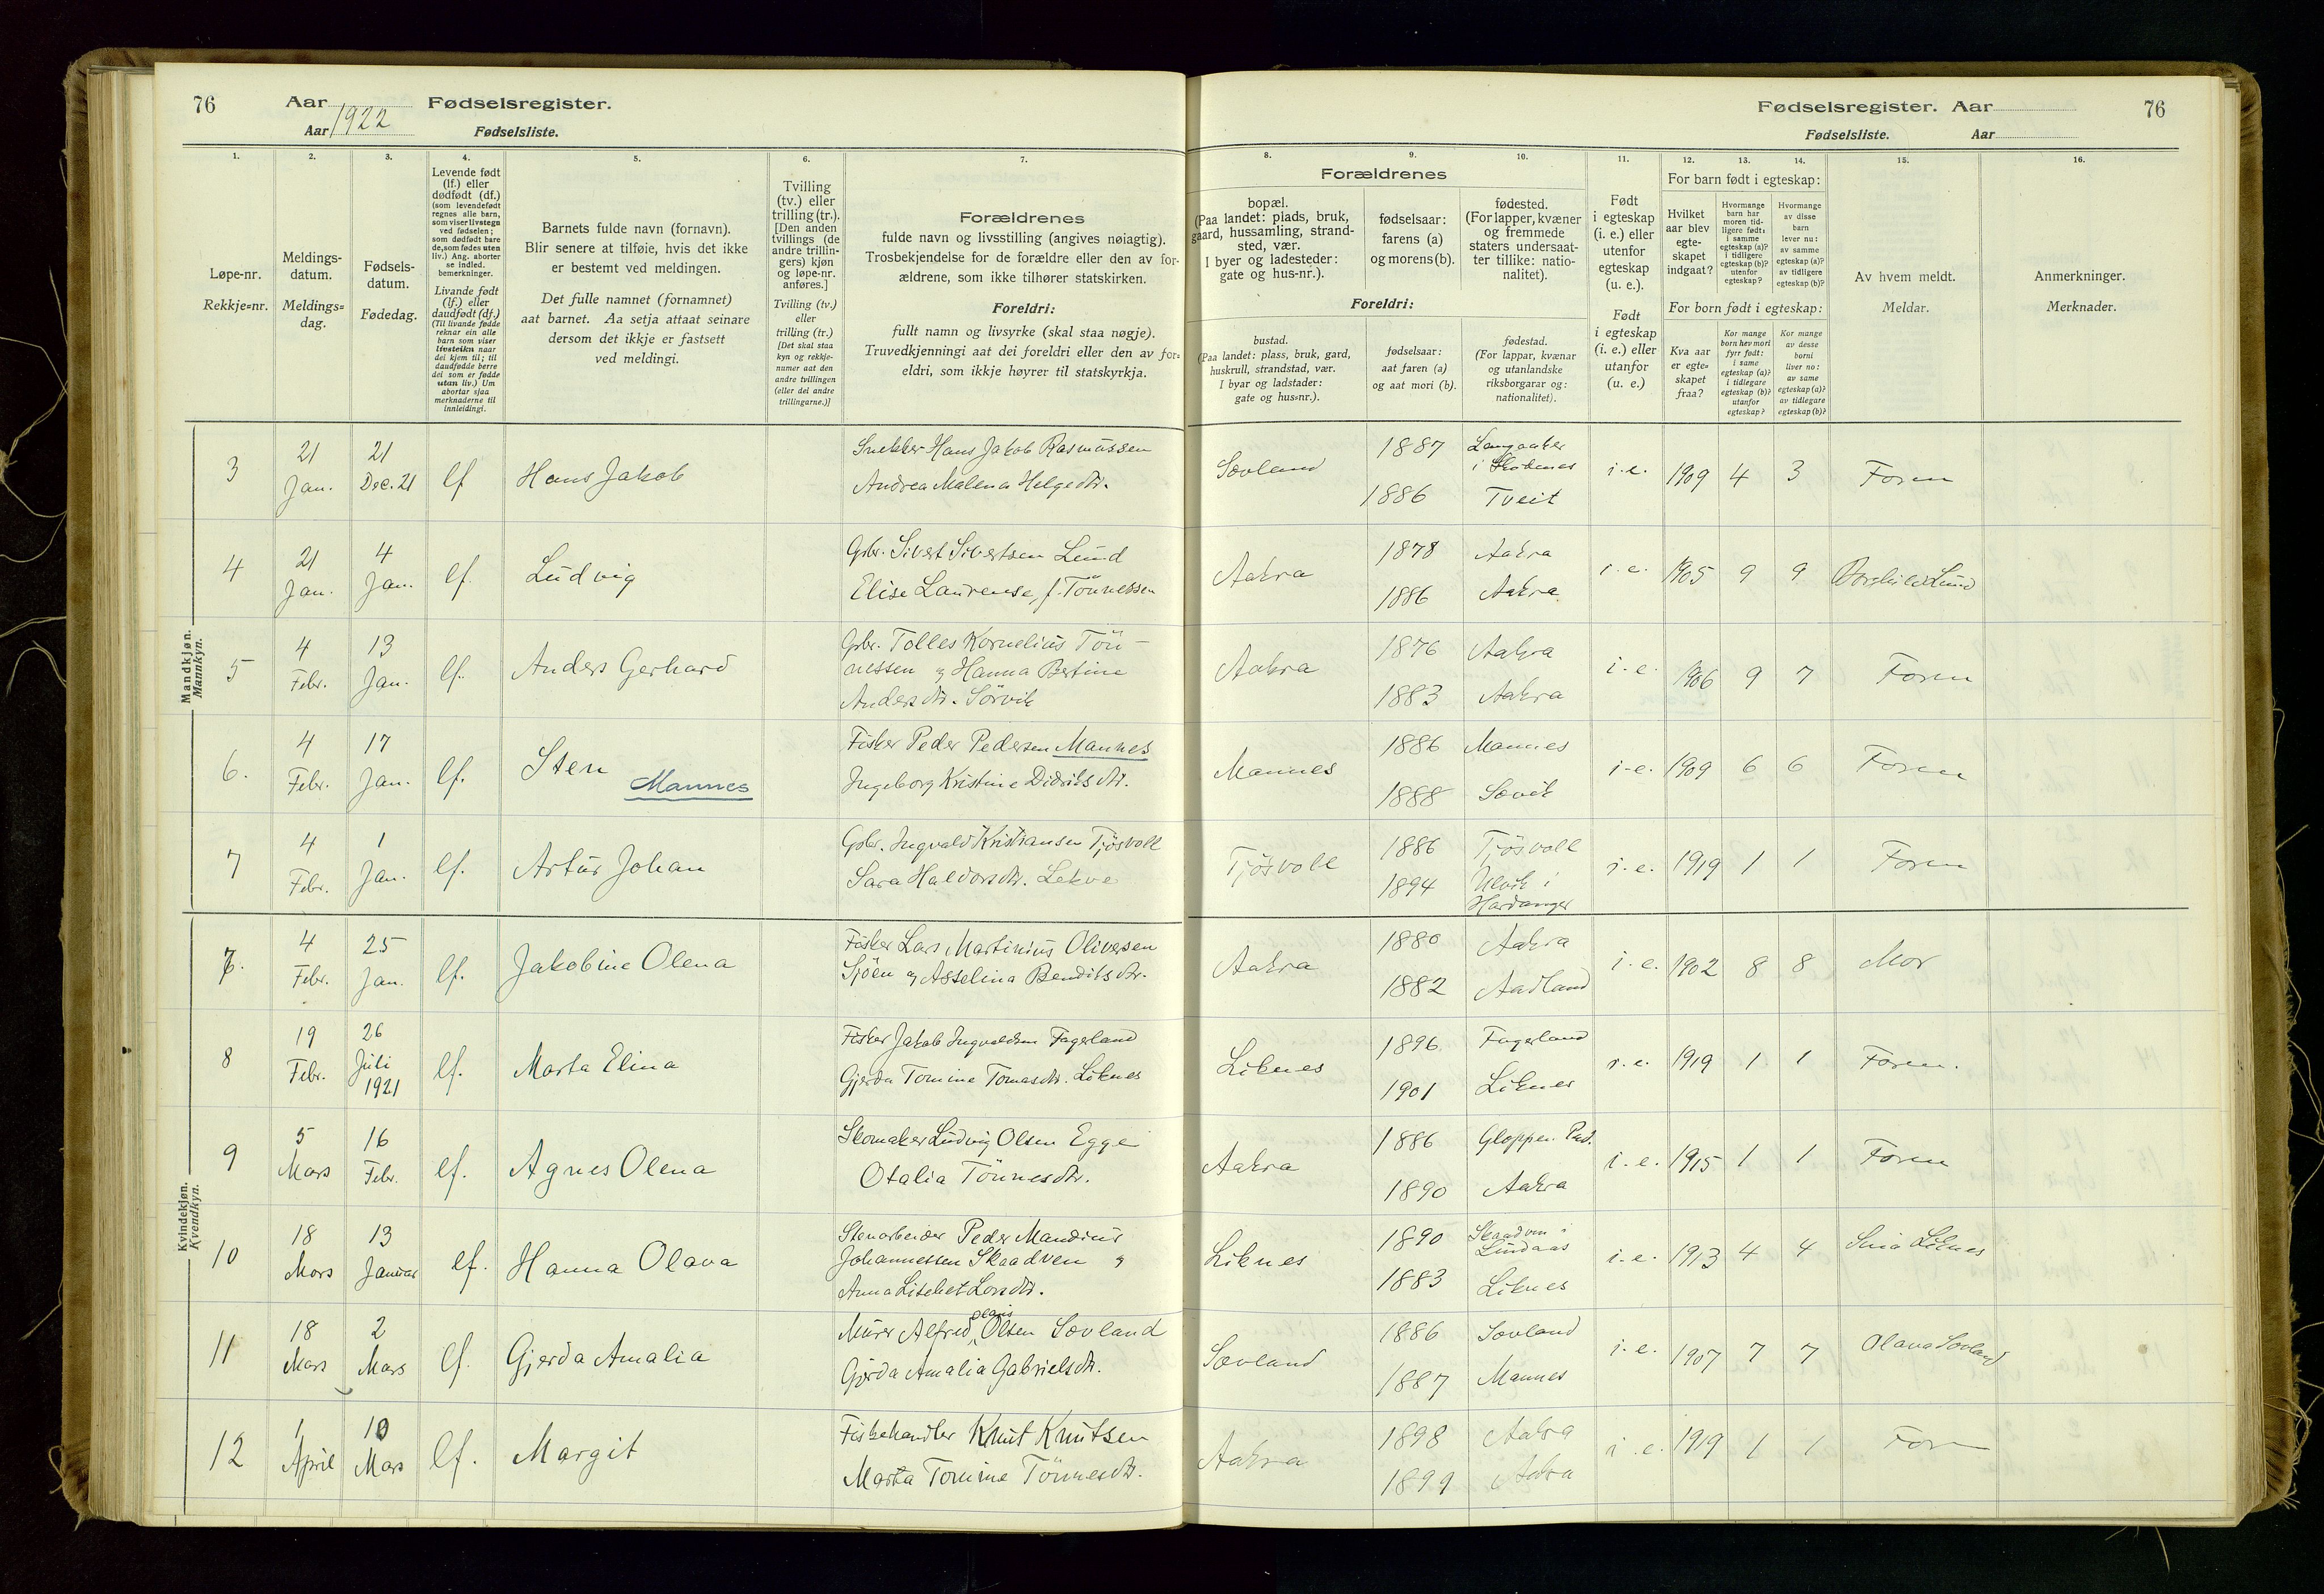 76 Aar 1922 Fødselsregister.
Aar Fødselsliste.
Fødselsregister. Aar 76
Fødselsliste. Aar
1. 2. 3. 4. 5. 6. 7. 8. 9. 10. 11. 12. 13. 14. 15. 16.
Løpe-nr.
Rekkje=nr.
Meldings-
datum.
Meldings=
dag.
Fødsels-
datum.
Fødedag.
Levende født
(lf.) eller
dødfødt (df.)
(som levendefødt
regnes alle barn,
som viser livstegn
ved fødselen;
som dødfødt bare
de, som fødes uten
liv.) Ang. aborter
se indled.
bemerkninger.
Livande født
(lf.) eller
daudfødt (df.)
(Til livande fødde
reknar ein alle
barn som viser
livsteikn naar
dei kjem til; til
daudfødde berre
dei som er fødde
utan liv.) Um
abortar sjaa
merknaderne til
innleidingi.
Barnets fulde navn (fornavn).
Blir senere at tilføie, hvis det ikke
er bestemt ved meldingen.
Det fulle namnet (fornamnet)
aat barnet. Aa setja attaat seinare
dersom det ikkje er fastsett
ved meldingi.
Tvilling
(tv.) eller
trilling (tr.).
[Den anden
tvillings (de
andre trillin-
gers) kjøn
og løpe-nr.
anføres.]
Tvilling (tv.)
eller
trilling (tr.)
[Det skal staa
kyn og rekkje-
numer aat den
andre tvillingen
(eller dei andre
trillingarne.)]
Forældrenes
fulde navn og livsstilling (angives nøiagtig).
Trosbekjendelse for de forældre eller den av for-
ældrene, som ikke tilhører statskirken.
Foreldri:
fullt namn og livsyrke (skal staa nøgje).
Truvedkjenningi aat dei foreldri eller den av for=
eldri, som ikkje høyrer til statskyrkja.
Forældrenes
bopæl.
(Paa landet: plads, bruk,
gaard, hussamling, strand-
sted, vær.
I byer og ladesteder:
gate og hus-nr.).
fødselsaar:
farens (a)
og morens (b).
fødested.
(For lapper, kvæner
og fremmede
staters undersaat-
ter tillike: natio-
nalitet).
Foreldri:
bustad.
(Paa landet: plass, bruk, gard,
huskrull, strandstad, vær.
I byar og ladstader:
gate og hus=nr.).
fødselsaar:
aat faren (a)
og aat mori (b).
fødestad.
(For lappar, kvænar
og utanlandske
riksborgarar og:
nationalitet).
Født
i egteskap
(i. e.) eller
utenfor
egteskap
(u. e.).
Født
i egteskap
(i. e.) eller
utanfor
egteskap
(u. e.)
For barn født i egteskap:
Hvilket
aar blev
egte-
skapet
indgaat?
Hvormange
barn har
moren tid-
ligere født:
i samme
egteskap (a)?
i tidligere
egteskap (b)?
utenfor
egteskap?
Hvormange
av disse
barn
lever nu:
av samme
egteskap (a)?
av tidligere
egteskap (b)?
For born født i egteskap:
Kva aar
er egte=
skapet
fraa?
Kor mange
born hev mori
fyrr født:
i same
egteskap (a)?
i tidlegare
egteskap (b)?
utanfor
egteskap?
Kor mange
av desse
borni
liver no:
av same
egteskap (a)?
av tidlegare
egteskap (b)?
Av hvem meldt.
Meldar.
Anmerkninger.
Merknader.
Mandkjøn.
Mannkyn.
3 21 Jan. 21 Dec. 21 lf Hans Jakob
Snekker Hans Jakob Rasmussen
Andrea Malena Helgedtr.
Sævland 1887 1886 i Skudenes Tveit i.e. 1909 4 3 Faren
4 21 Jan. 4 Jan. lf. Ludvig
Gbr. Sivert Sivertsen Lund
Elise Laurense, f. Tönnessen
Aakra 1878 Aakra 1886 Aakra i.e. 1905 9 9 Lund
5 4 Febr. 13 Jan. lf. Anders Gerhard
Gbr. Tolles Kornelius Tön-
nessen og Hanna Bertine
Andersdtr. Sörvik
Aakra 1876 Aakra 1883 Aakra i.e. 1906 9 7 Faren
6. 4 Febr. 17 Jan. lf. Sten Mannes
Fisker Peder Pedersen Mannes
Ingeborg Kristine Didriksdtr.
Mannes 1886 Mannes 1888 Sævik i.e. 1909 6 6 Faren
7 4 Febr. 1 Jan. lf. Artur Johan
Gbr. Ingvald Kristiansen Tjösvoll
Sara Haldorsdtr. Lekve
Tjösvoll 1886 Tjösvoll 1894 Ulvik i Hardanger i.e. 1919 1 1 Faren
Kvindekjøn.
Kvendkyn.
7. 4 Febr. 25 Jan. lf. Jakobine Olena
Fisker Lars Martinius Oliversen
Sjöen og Asselina Bendiksdtr.
Aakra 1880 Aakra 1882 Aadland i.e. 1902 8 8 Mor
8 19 Febr. 26 Juli 1921 lf. Marta Elina
Fisker Jakob Ingvaldsen Fagerland
Gjerda Tomine Tomasdtr. Liknes
Liknes 1896 Fagerland 1901 Liknes i.e. 1919 1 1 Faren.
9 5 Mars 16 Febr. lf. Agnes Olena
Skomaker Ludvig Olsen Egge
Otalia Tönnesdtr.
Aakra 1886 Gloppen 1890 Aakra i.e. 1915 1 1 Faren
10 18 Mars 13 Januar lf. Hanna Olava
Stenarbeider Peder Mandius
Johannessen Skaadven og
Anna Lisebet Larsdtr.
Liknes 1890 Skaadven i Lindaas 1883 Liknes i.e. 1913 4 4 Liknes
11 18 Mars 2 Mars lf. Gjerda Amalia
Murer Alfred Olaus Olsen Sævland
Gjerda Amalia Gabrielsdtr.
Sævland 1886 Sævland 1887 Mannes i.e. 1907 7 7 Olava Sævland
12 1 April 10 Mars lf. Margit
Fiskehandler Knut Knutsen
Marta Tomine Tönnesdtr.
Aakra 1898 Aakra 1899 Aakra i.e. 1919 1 1 Far